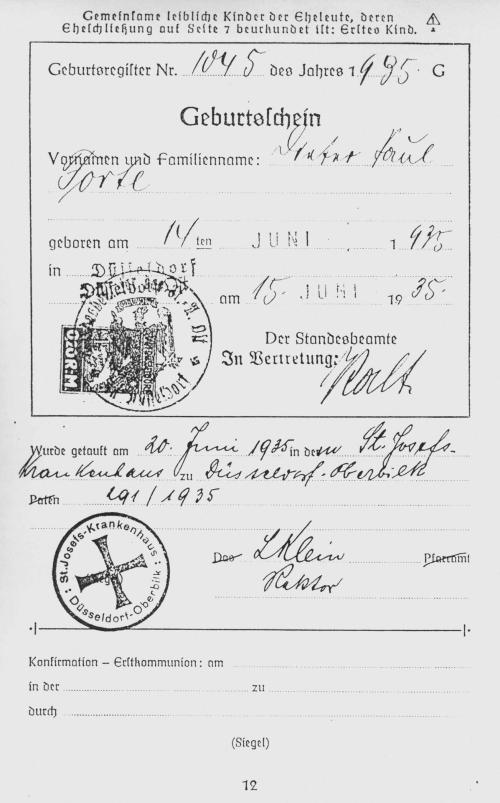 Gemeinsame leibliche Kinder der Eheleute, deren
Eheschließung auf Seite 7 beurkundet ist: Erstes Kind.
Geburtsregister Nr. 1045 des Jahres 1935. G
Geburtsschein
Vornamen und Familienname: Dieter Paul
Forte
geboren am 14 ten JUNI 1 935
in Düsseldorf
Düsseldorf am 15. JUNI 19 35.
Der Standesbeamte
In Vertretung:
Wurde getauft am 20. Juni 1935 in dem St. Josefs-
Krankenhaus zu Düsseldorf-Oberbilk
Paten 191/1935
St. Josefs-Krankenhaus
Düsseldorf-Oberbilk
Das L Klein Pfarramt
Rektor
Konfirmation – Erstkommunion: am
in der zu
durch
(Siegel)
12